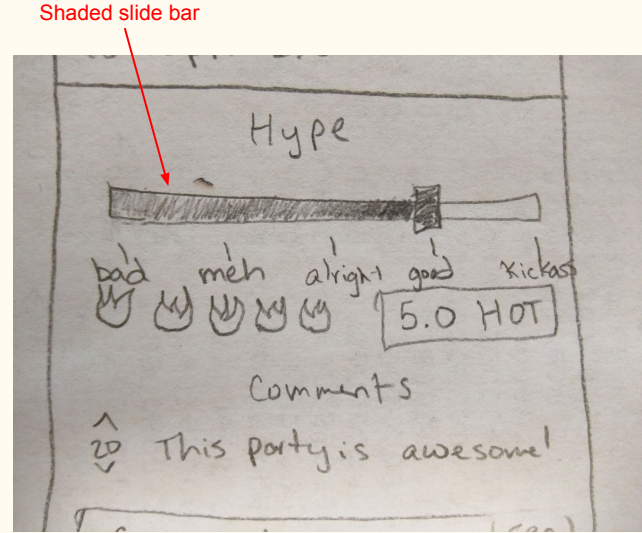 Shaded slide bar
Hype
bad meh alright good kickass
5.0 HOT
Comments
20 This party is awesome!